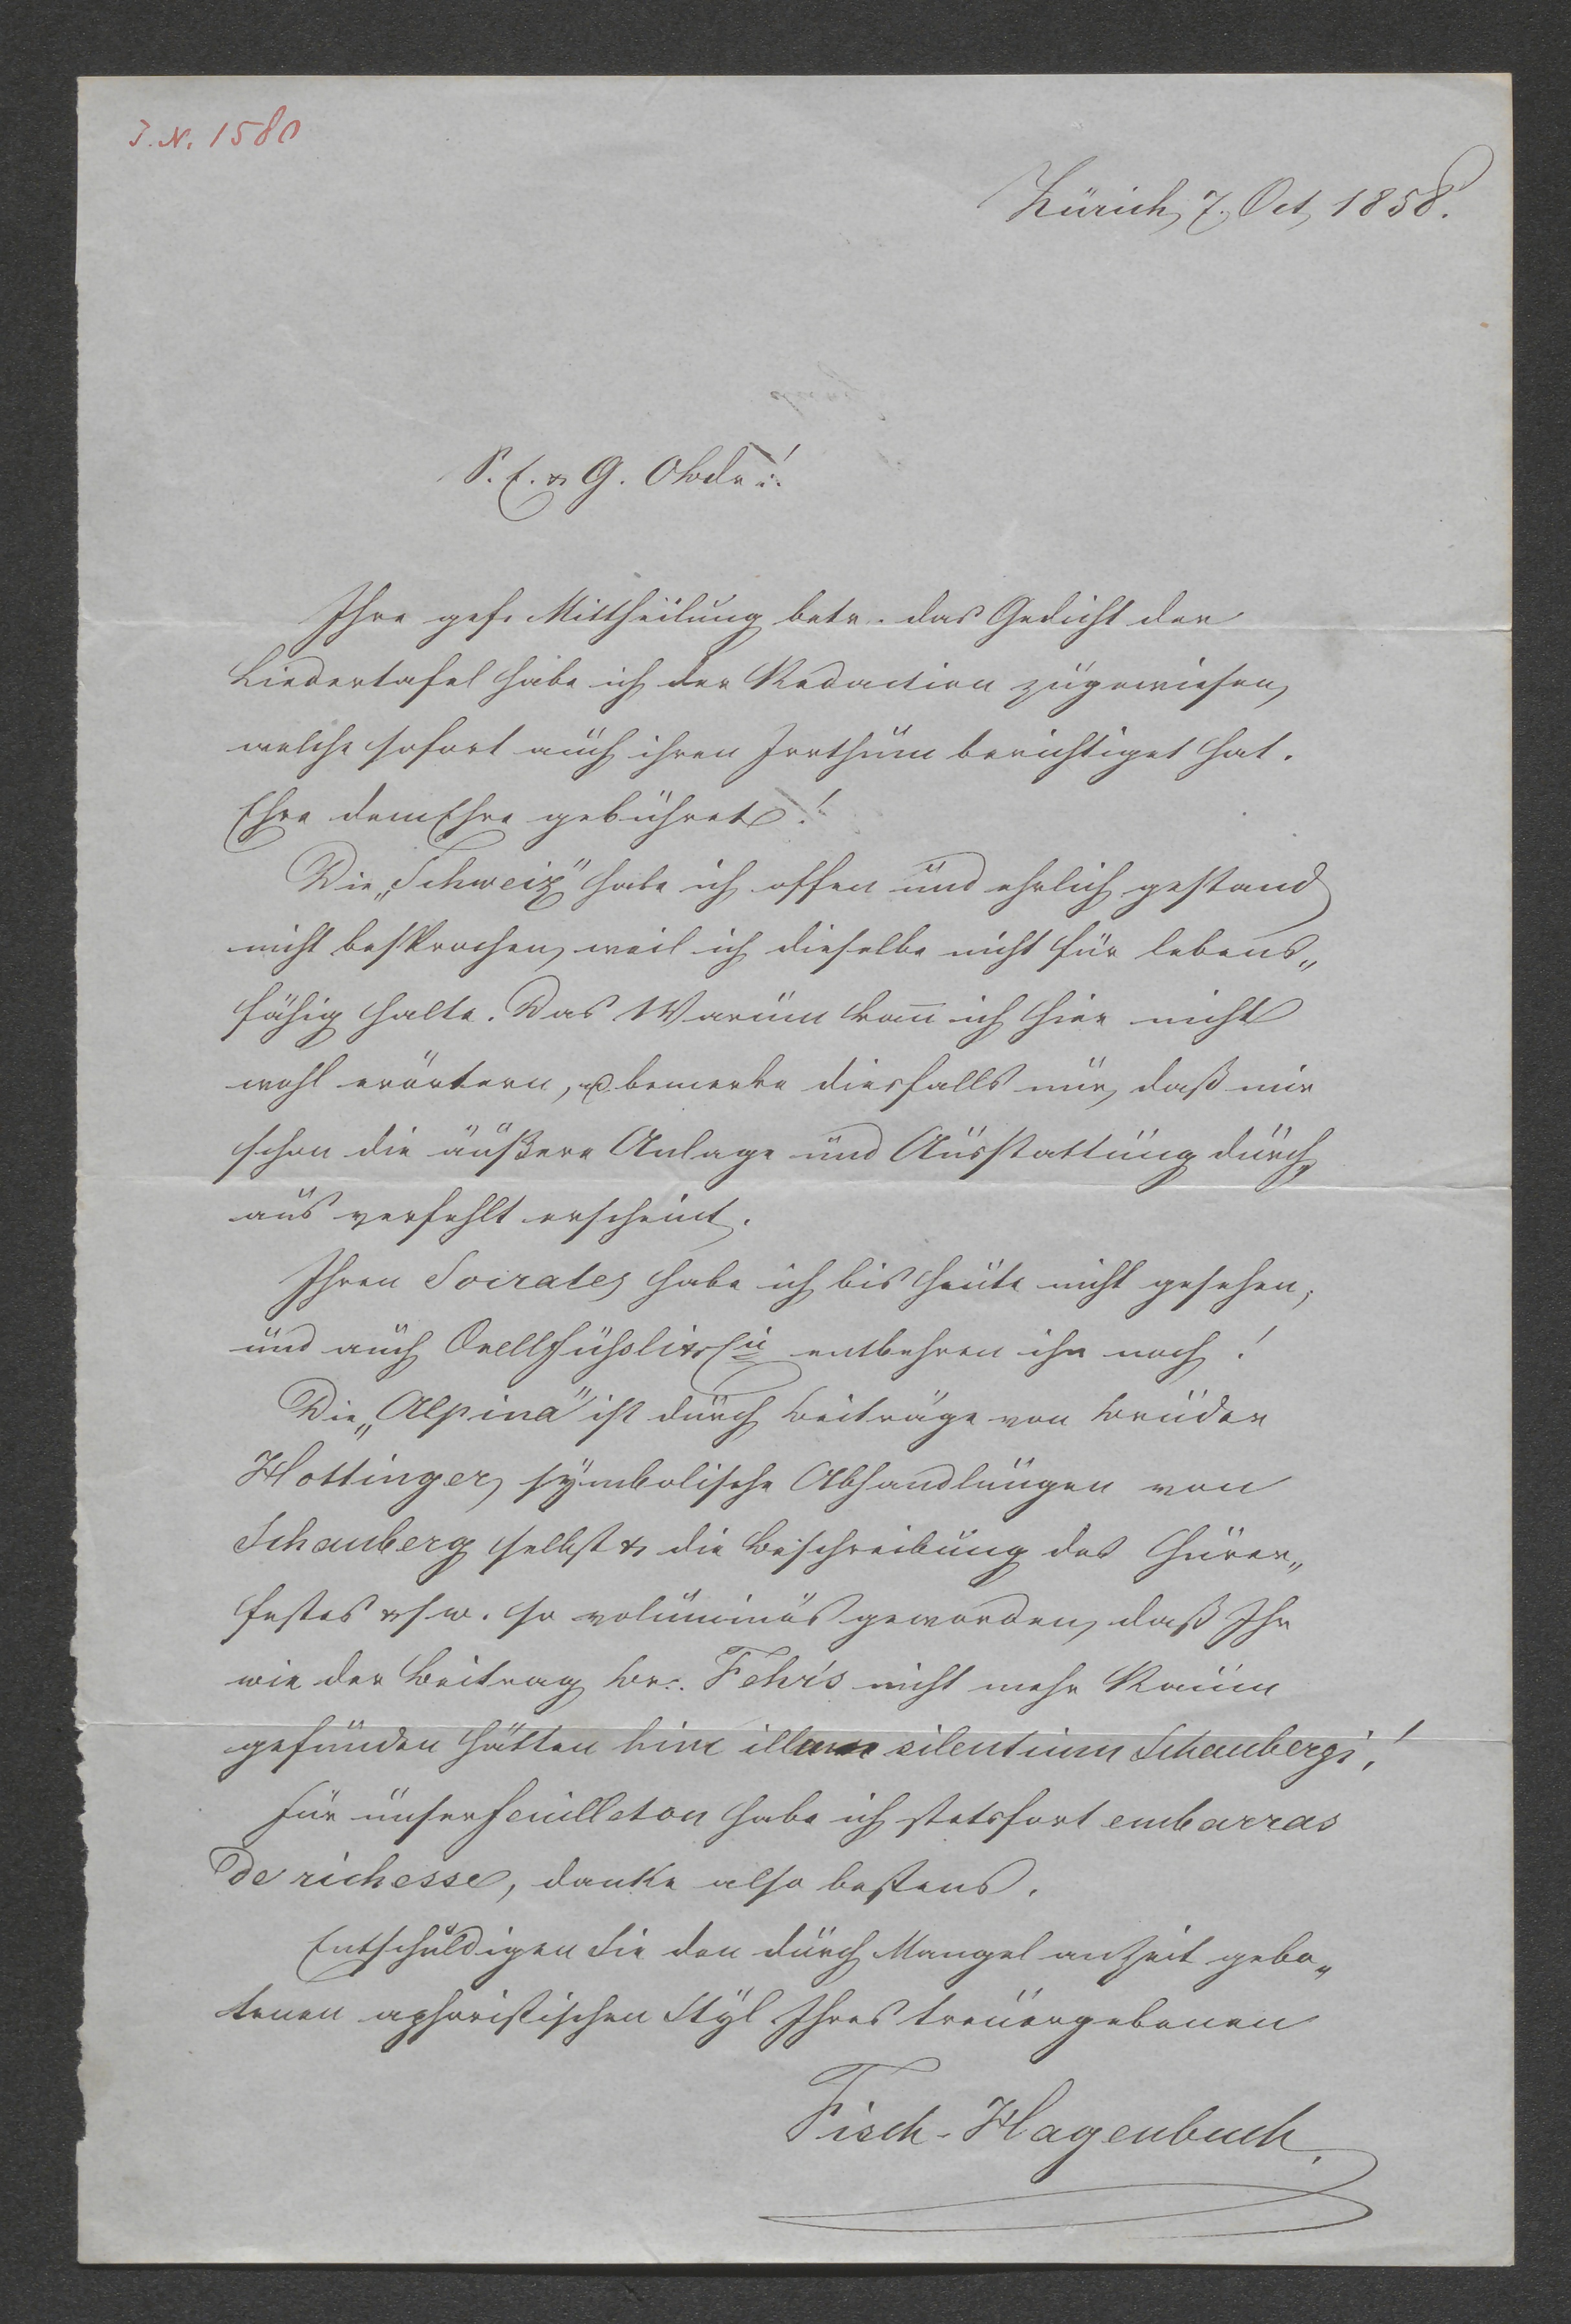 J. N. 1580
Zürich, 7. Oct, 1858.
S. E. & G. Obdr∴!
Ihre gef. Mittheilung betr. das Gedicht der
Liedertafel habe ich der Redaction zugewiesen,
welche sofort auch ihren Irrthum berichtiget hat.
Ehre dem Ehre gebühret!
Die „Schweiz" habe ich offen und ehrlich gestand
nicht besprochen, weil ich dieselbe nicht für lebens„
fähig halte. Das Warum kan̄ ich hier nicht
wohl erörtern, & bemerke diesfalls nur, daß mir
schon die äußere Anlage und Ausstattung durch„
aus verfehlt erscheint.
Ihren Socrates habe ich bis heute nicht gesehen,
und auch Orell Füßli & Cie entbehren ihn noch!
Die „Alpina" ist durch Beiträge von Bruder
Hottinger, symbolische Abhandlungen von
Schauberg selbst & die Beschreibung des
festes & s. w. so voluminös geworden, daß Ihr
wie der Beitrag Br∴ Fehr's nicht mehr Raum
gefunden hätten hinc illum silentium Schaubergi!
Für unser Feuilleton habe ich stetsfort embarras
de richesse, danke also bestens.
Entschuldigen Sie den durch Mangel an Zeit gebo„
tenen aphoristischen Styl Ihres treuergebenen
Fisch-Hagenbuch.